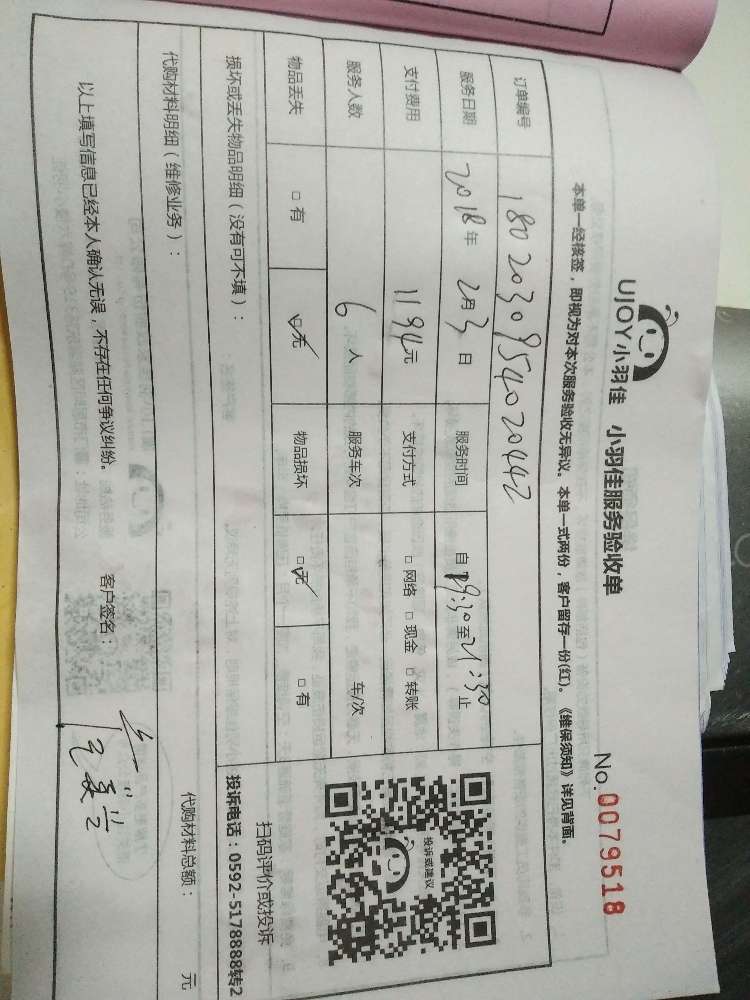 UJOY小羽佳 小羽佳服务验收单 No.0079518
本单一经核签，即视为对本次服务验收无异议。本单一式两份，客户留存一份(红)。《维保须知》详见背面。
订单编号 180203095402044 2
服务日期 2018年 2月3日 服务时间 自19:30至21:30止
支付费用 1194元 支付方式 □网络 □现金 □转账
服务人数 6人 服务车次 车/次
物品丢失 □有 ☑无 物品损坏 ☑无 □有
投诉或建议
扫码评价或投诉
投诉电话：0592-5178888转2
损坏或丢失物品明细（没有可不填）：
代购材料明细（维修业务）： 代购材料总额： 元
以上填写信息已经本人确认无误，不存在任何争议纠纷。 客户签名：